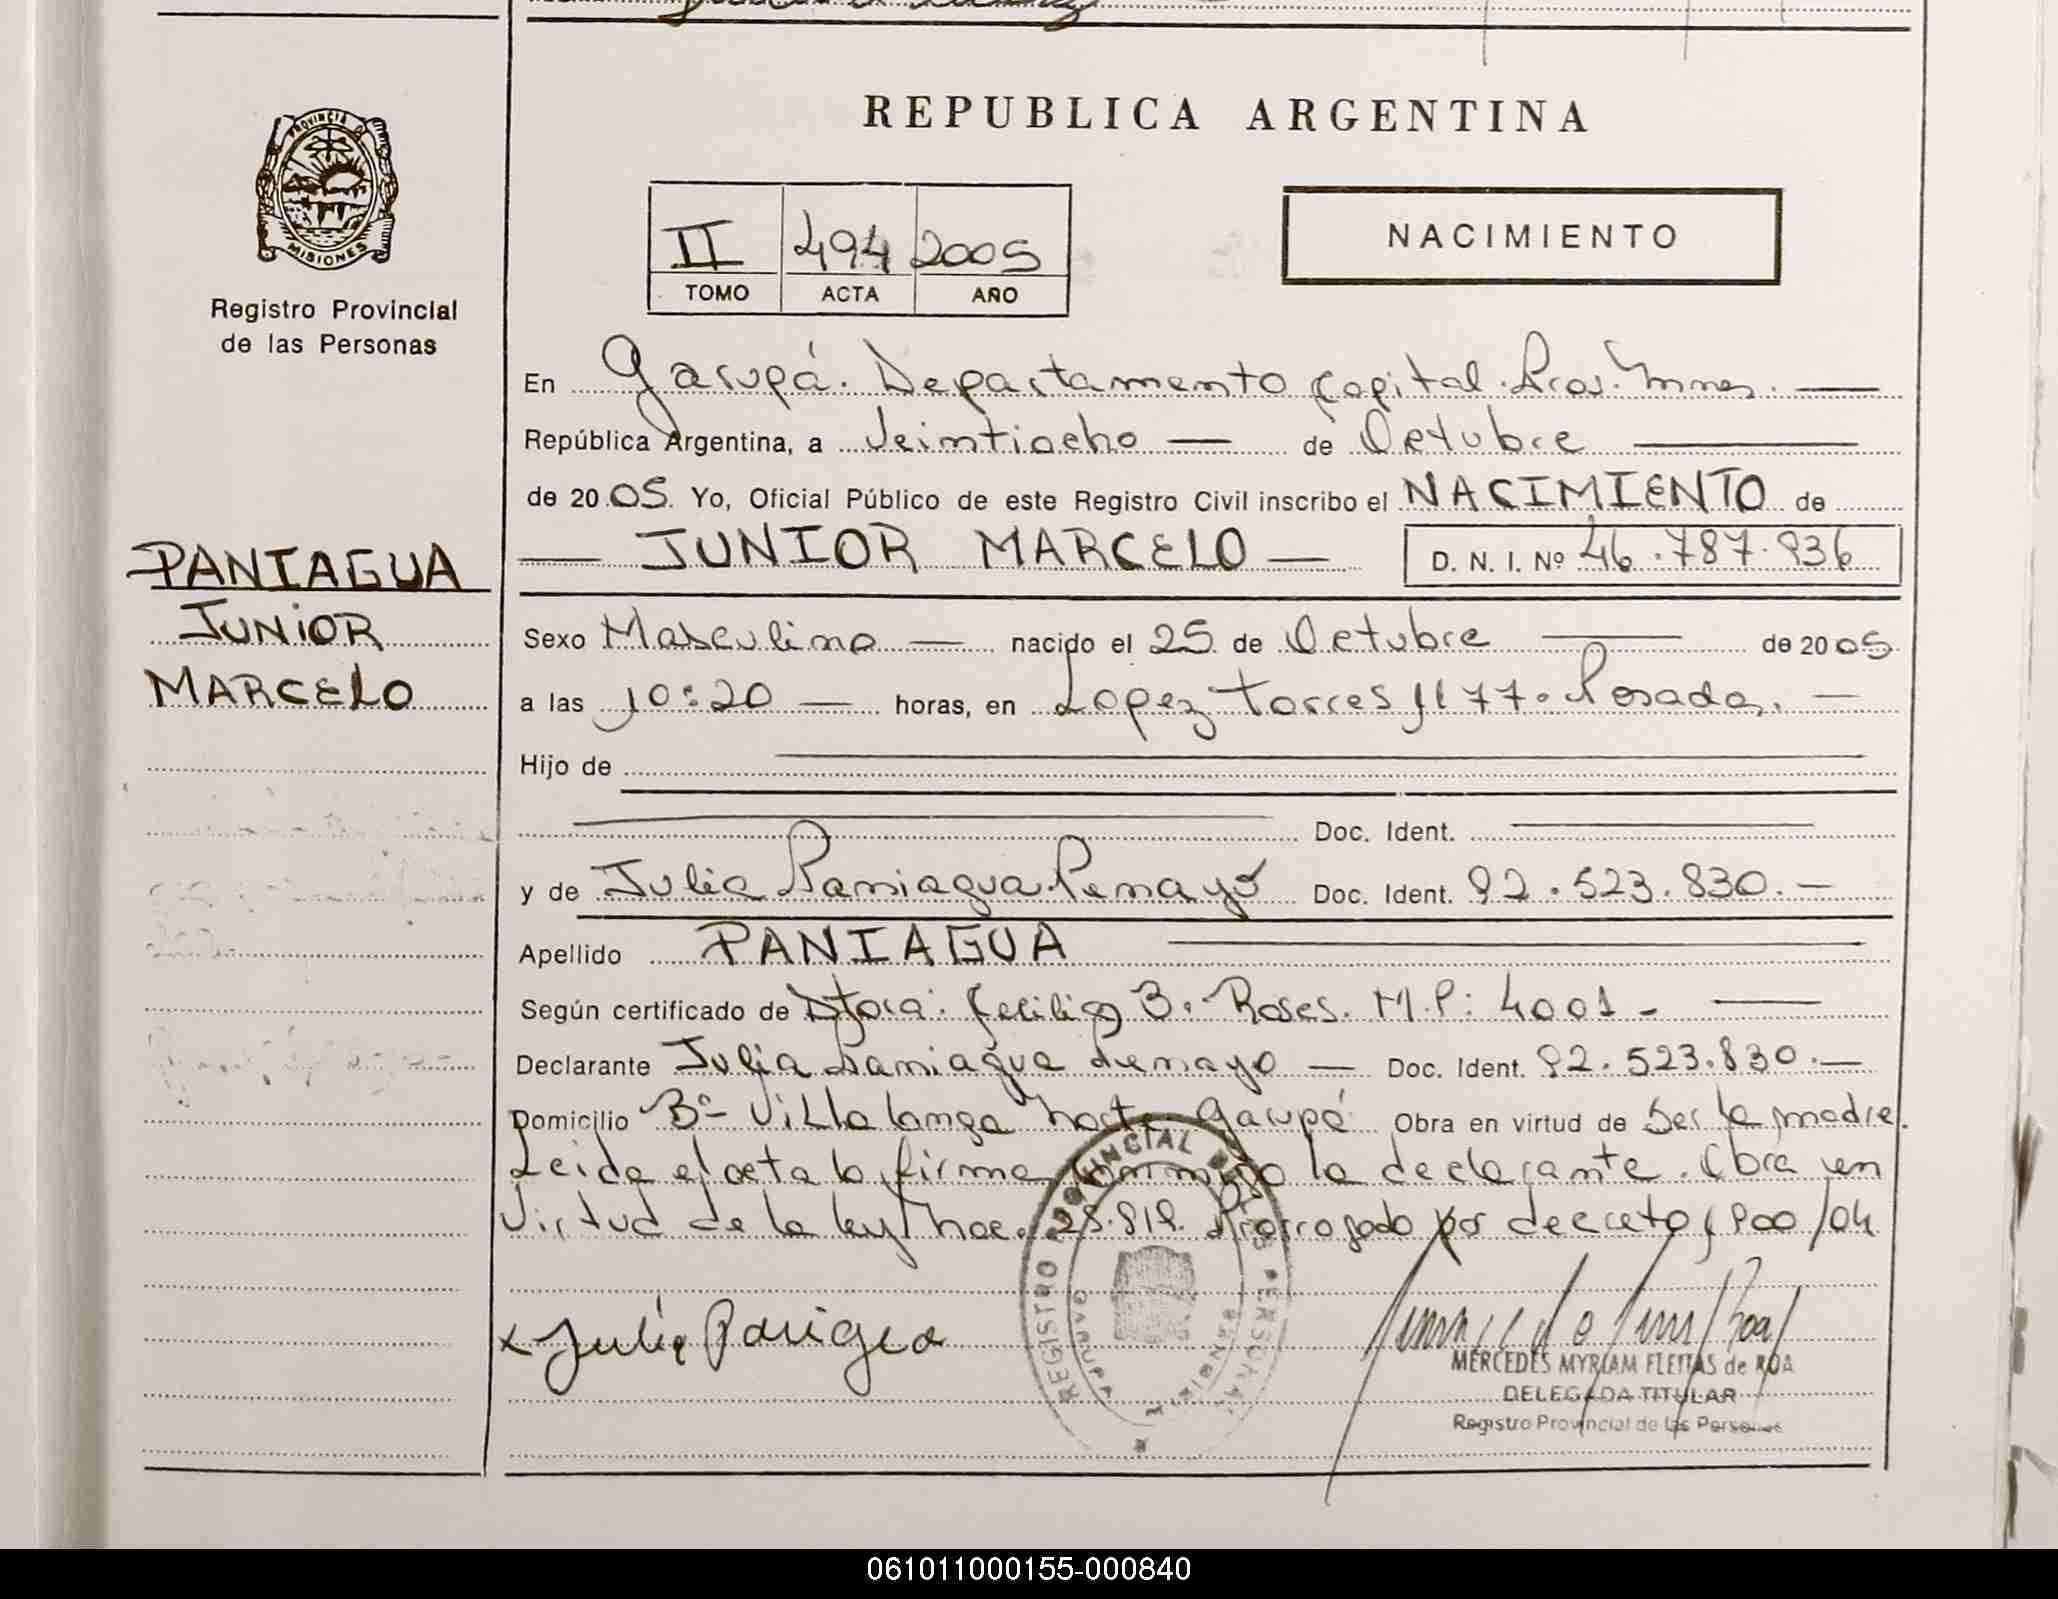 REPUBLICA ARGENTINA
PROVINCIA D
MISIONES
Registro Provincial
de las Personas
II 494 2005
TOMO ACTA AÑO
NACIMIENTO
En Garupá. Departamento Capital. Pcia. Mnes.
República Argentina, a Veintiocho de Octubre
de 2005. Yo, Oficial Público de este Registro Civil inscribo el NACIMIENTO de
JUNIOR MARCELO D. N. I. Nº 46.787.936
PANIAGUA
JUNIOR
MARCELO
Sexo Masculino nacido el 25 de Octubre de 2005
a las 10:20 horas, en Lopez Torres 1177. Posadas.
Hijo de
Doc. Ident.
y de Julia Paniagua Penayo Doc. Ident. 92.523.830.
Apellido PANIAGUA
Según certificado de Dtora: Cecilia B. Roses. M.P: 4001 -
Declarante Julia Paniagua Penayo Doc. Ident. 92.523.830.
Domicilio Bº Villa Longa Norte Garupá Obra en virtud de Ser la madre.
Leida el acta la firma conmigo la declarante. Obra en
Virtud de la ley Nac. 25.819. Prorrogado por decreto 1900/04
REGISTRO PROVINCIAL DE LAS PERSONAS
GARUPA
x Julia Paniagua
MERCEDES MYRIAM FLEITAS de ROA
DELEGADA TITULAR
Registro Provincial de las Personas
061011000155-000840